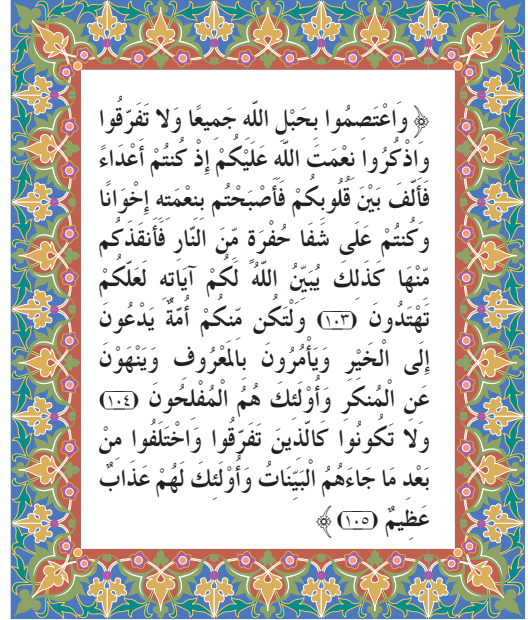 ﴿ وَاعْتَصِمُوا بِحَبْلِ اللّهِ جَمِيعًا وَلا تَفَرَّقُوا
وَاذْكُرُوا نِعْمَتَ اللّهِ عَلَيْكُمْ إِذْ كُنتُمْ أَعْدَاءً
فَأَلَّفَ بَيْنَ قُلُوبِكُمْ فَأَصْبَحْتُم بِنِعْمَتِهِ إِخْوَانًا
وَكُنتُمْ عَلَى شَفَا حُفْرَةٍ مِّنَ النَّارِ فَأَنقَذَكُم
مِّنْهَا كَذَلِكَ يُبَيِّنُ اللّهُ لَكُمْ آيَاتِهِ لَعَلَّكُمْ
تَهْتَدُونَ (١٠٣) وَلْتَكُن مِّنكُمْ أُمَّةٌ يَدْعُونَ
إِلَى الْخَيْرِ وَيَأْمُرُونَ بِالمَعْرُوفِ وَيَنْهَوْنَ
عَنِ الْمُنكَرِ وَأُوْلَئِكَ هُمُ الْمُفْلِحُونَ (١٠٤)
وَلا تَكُونُوا كَالَّذِينَ تَفَرَّقُوا وَاخْتَلَفُوا مِنْ
بَعْدِ مَا جَاءَهُمُ الْبَيِّنَاتُ وَأُوْلَئِكَ لَهُمْ عَذَابٌ
عَظِيمٌ (١٠٥) ﴾